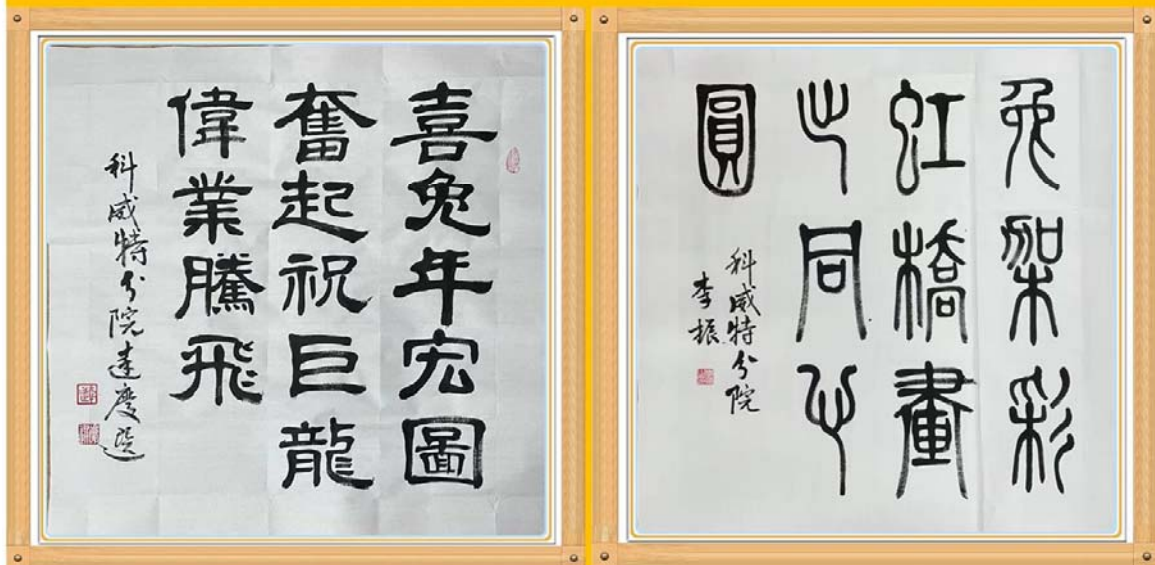 喜兔年宏圖
奮起祝巨龍
偉業騰飛
科威特分院
兔架彩
虹橋畫
出同心
圓
科威特分院
李振